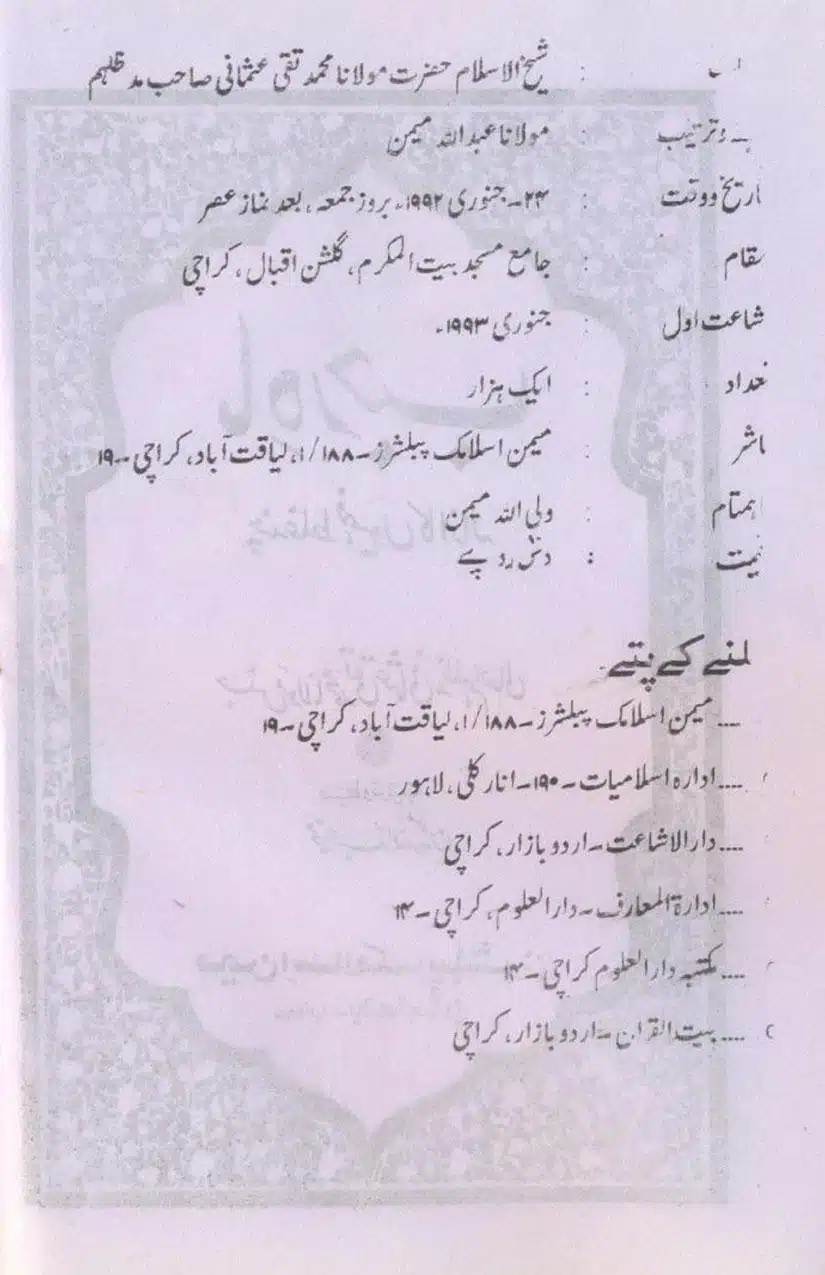 : شیخ الاسلام حضرت مولانا محمد تقی عثمانی صاحب مدظلہم
وترتیب : مولانا عبداللہ میمن
اریخ ووقت : ۲۴۔ جنوری ۱۹۹۲ء، بروز جمعہ، بعد نماز عصر
مقام : جامع مسجد بیت المکرم، گلشن اقبال، کراچی
شاعت اول : جنوری ۱۹۹۳ء
تعداد : ایک ہزار
اشر : میمن اسلامک پبلشرز۔ ۱۸۸/۱، لیاقت آباد، کراچی۔۱۹
اہتمام : ولی اللہ میمن
یمت : دس روپے
ملنے کے پتے
.... میمن اسلامک پبلشرز۔ ۱۸۸/۱، لیاقت آباد، کراچی۔۱۹
.... ادارہ اسلامیات۔ ۱۹۰۔ انار کلی، لاہور
.... دارالاشاعت۔ اردو بازار، کراچی
.... ادارۃ المعارف۔ دارالعلوم، کراچی۔ ۱۴
.... مکتبہ دارالعلوم کراچی۔ ۱۴
.... بیت القرآن۔ اردو بازار، کراچی